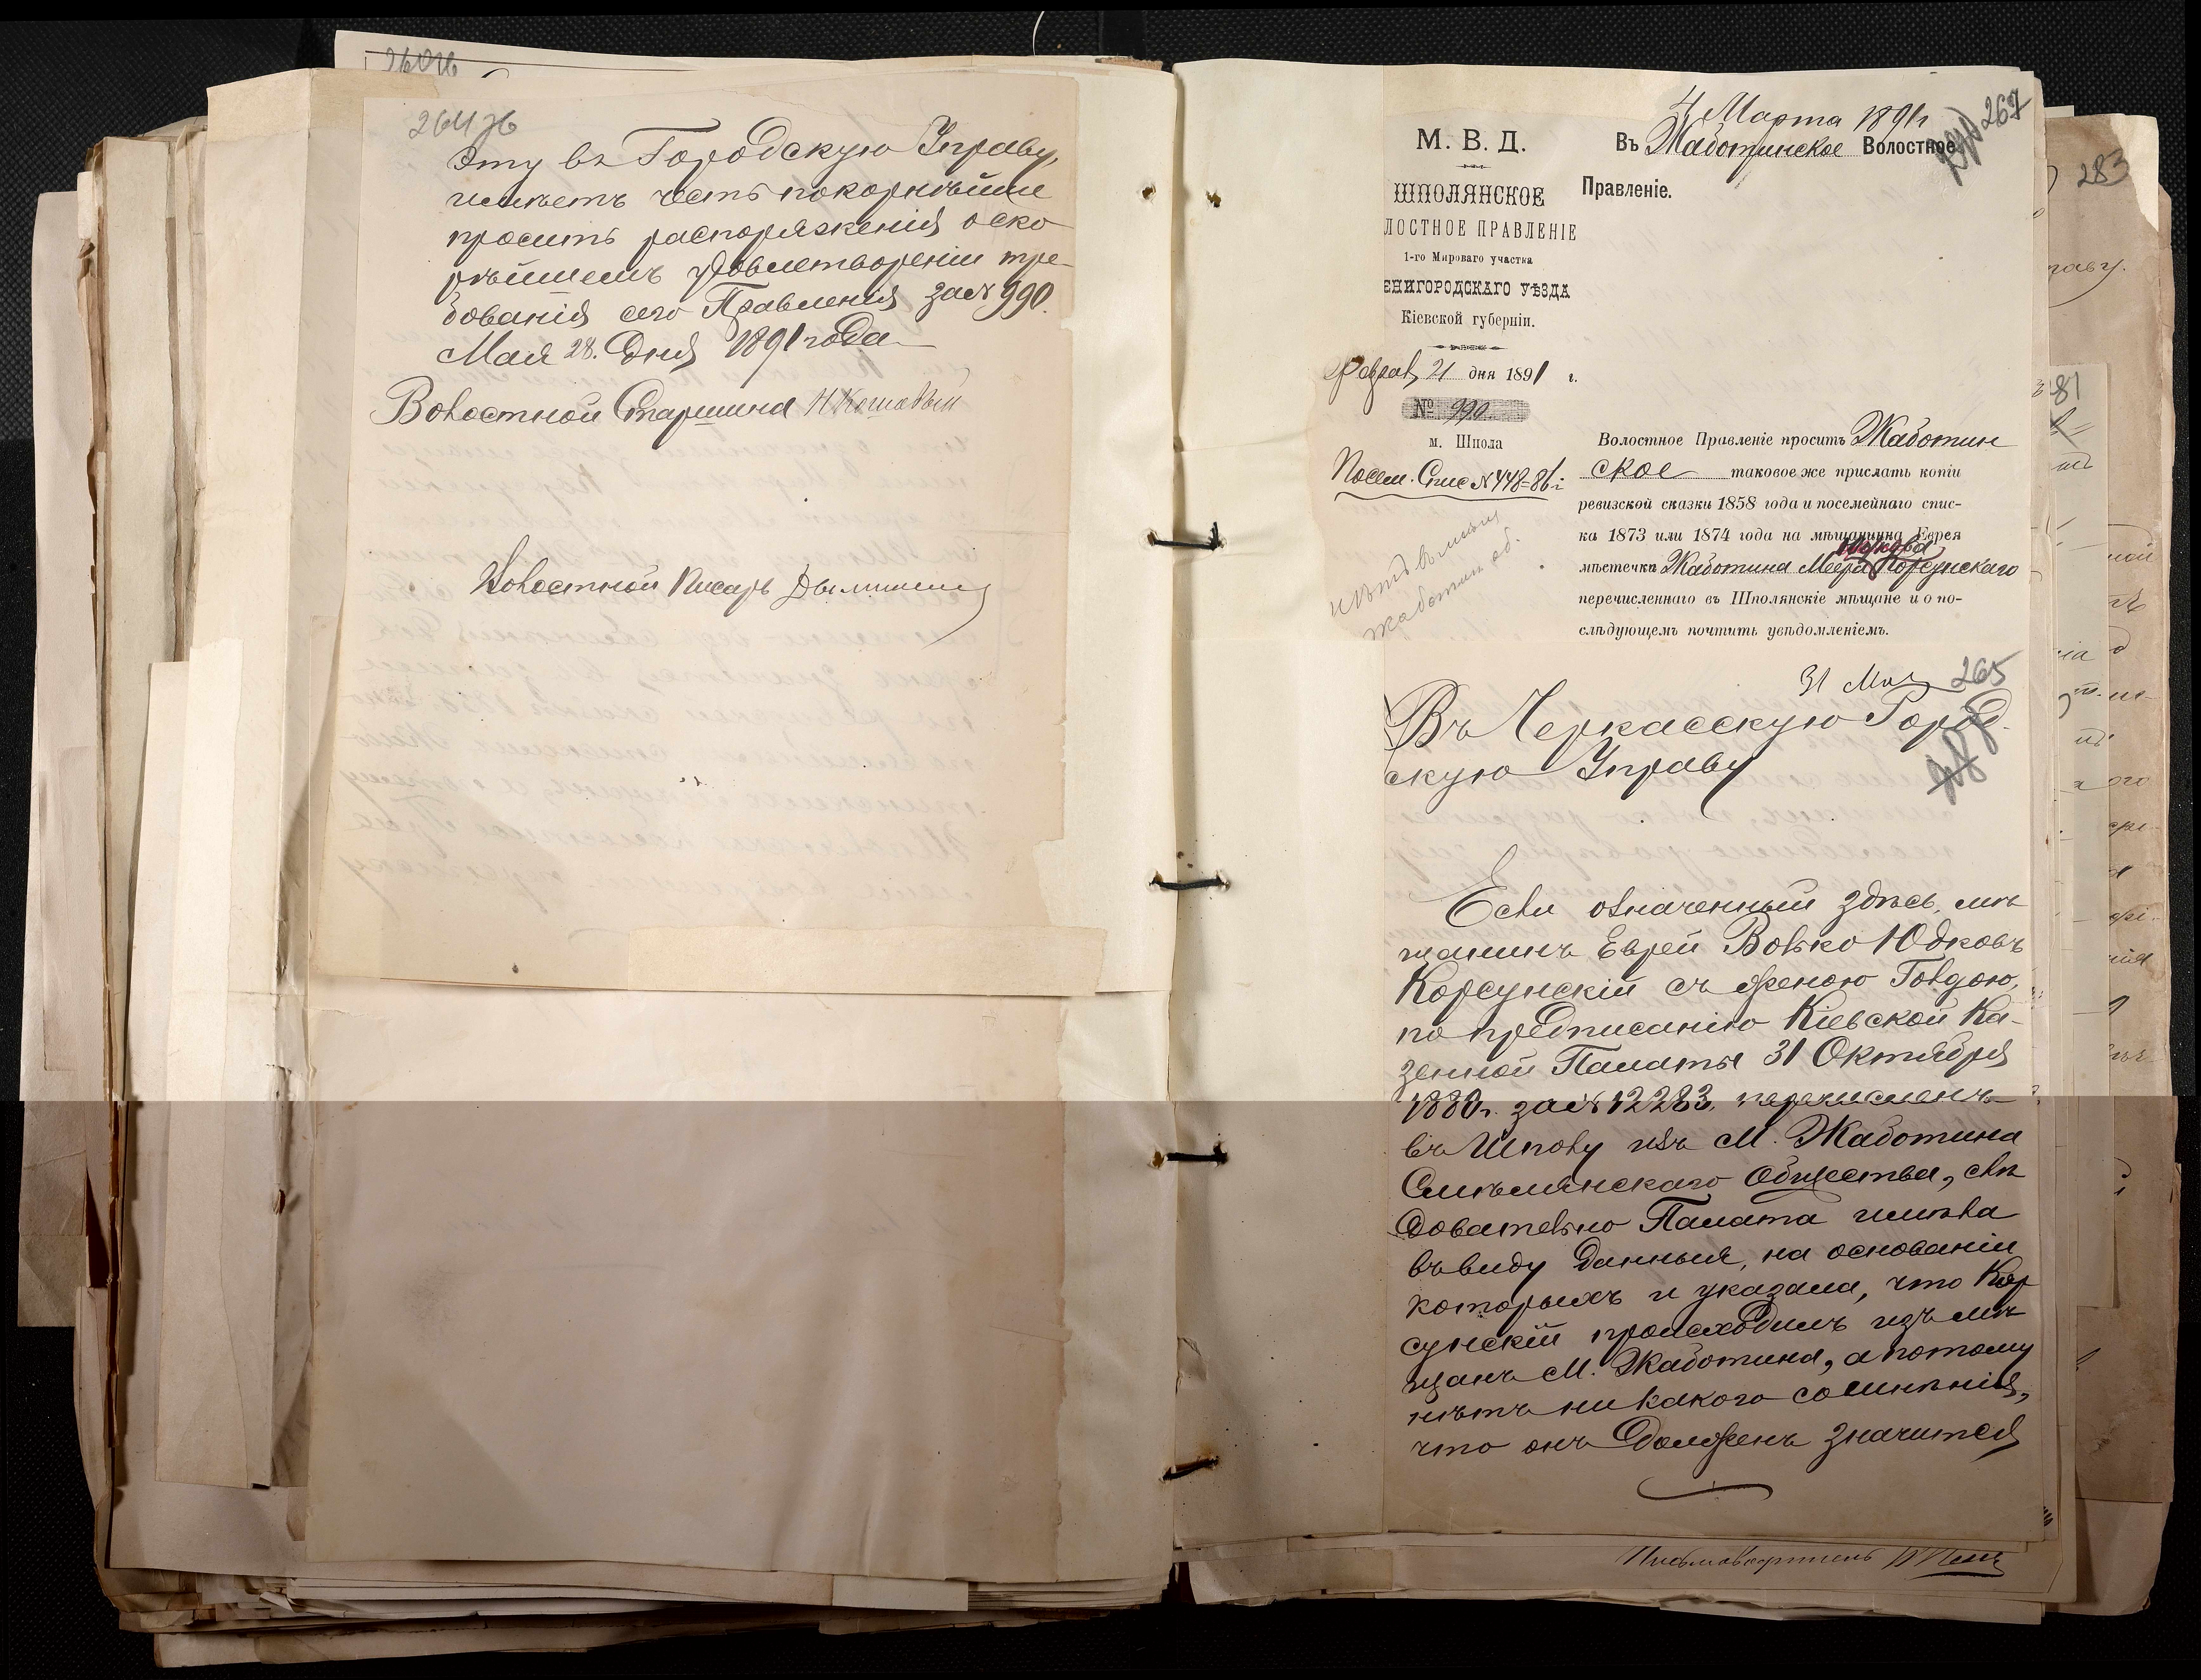 264 об
сту въ Городскую Управу,
имѣетъ честь покорнѣйше
просить распоряженія о ско-
рѣйшемъ удовлетвореніи тре-
бованія сего Правленія за № 990.
Мая 28. дня 1891 года
Волостной Старшина
Волостной Писарь
4 Марта 1891 г
267
М. В. Д.
Въ Жаботинское Волостное
Правленіе.
ШПОЛЯНСКОЕ
ЛОСТНОЕ ПРАВЛЕНІЕ
1-го Мироваго участка
ЕНИГОРОДСКАГО УѢЗДА
Кіевской губерніи.
Феврал 21 дня 1891 г.
№ 990
м. Шпола
Посем. Спис № 448-86 г
Волостное Правленіе проситъ Жаботин
ское таковое же прислать копіи
ревизской сказки 1858 года и посемейнаго спис-
ка 1873 или 1874 года на мѣщанина Еврея
мѣстечка Жаботина Меера Корсунскаго
перечисленнаго въ Шполянскіе мѣщане и о по-
слѣдующемъ почтить увѣдомленіемъ.
31 Мая 265
Въ Черкасскую Город-
скую Управу
Если означенный здѣсь, мѣ
щанинъ Еврей Волько Юдковъ
Корсунскій съ женою Голдою,
по предписанію Кіевской Ка-
зенной Палаты 31 Октября
1880 г. за № 12283, перечисленъ
въ Шполу изъ М. Жаботина
Смѣлянскаго Общества, слѣ
довательно Палата имѣла
въ виду данныя, на основаніи
которыхъ и указала, что Кор
сунскій происходитъ изъ мѣ
щанъ М. Жаботина, а потому
нѣтъ никакого сомнѣнія,
что онъ долженъ значится
283
81